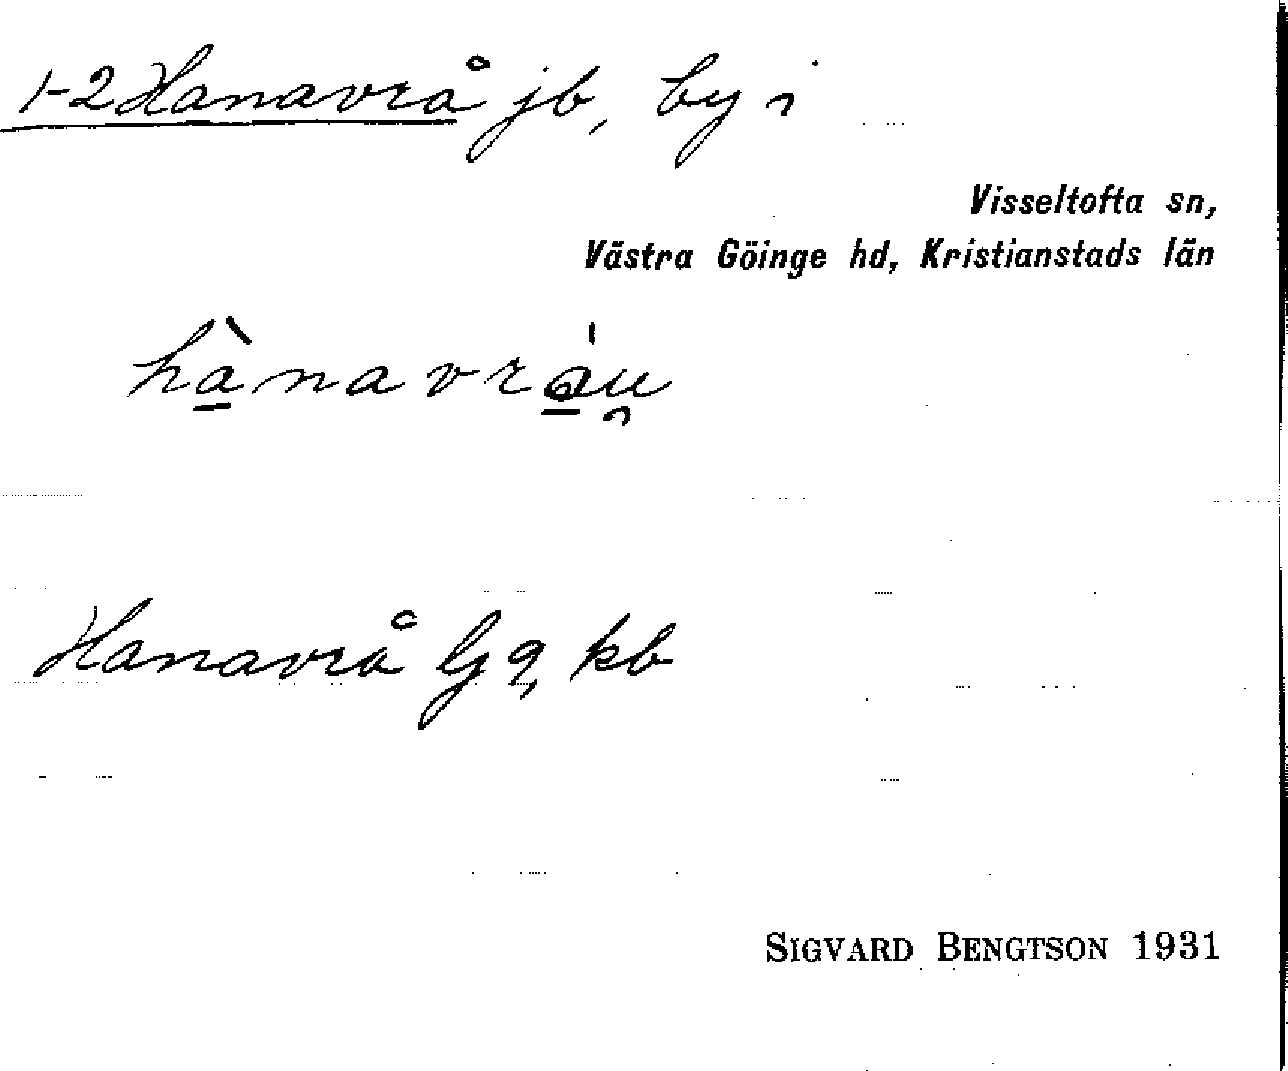 1-2 Hanavrå jb, by i
Visseltofta sn,
Västra Göinge hd, Kristianstads län
hànavråu̯
Hanavrå G 9, kb
SIGVARD BENGTSON 1931